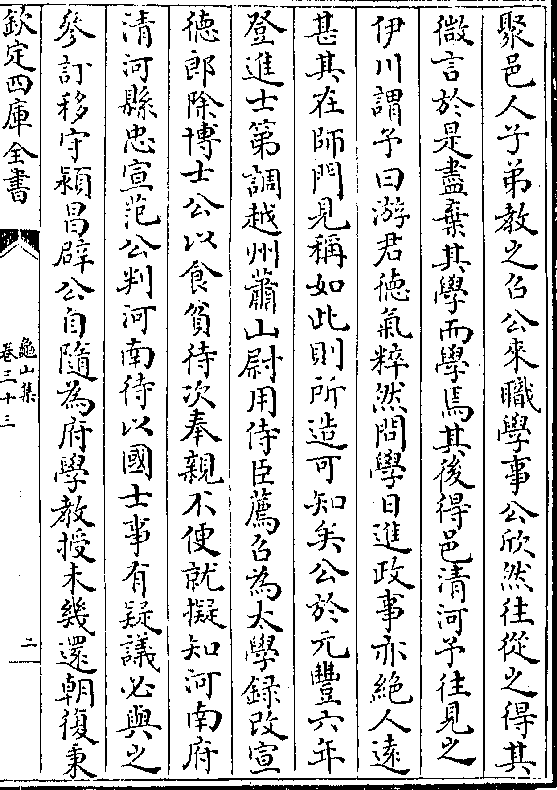 聚邑人子弟教之召公來職學事公欣然往從之得其
微言於是盡棄其學而學焉其後得邑清河予往見之
伊川謂予曰游君德氣粹然問學日進政事亦絶人遠
甚其在師門見稱如此則所造可知矣公於元豐六年
登進士第調越州蕭山尉用侍臣薦召為太學録改宣
德郎除博士公以食貧待次奉親不便就擬知河南府
清河縣忠宣范公判河南待以國士事有疑議必與之
參訂移守潁昌辟公自隨為府學教授未幾還朝復秉
欽定四庫全書
龜山集
卷三十三
二